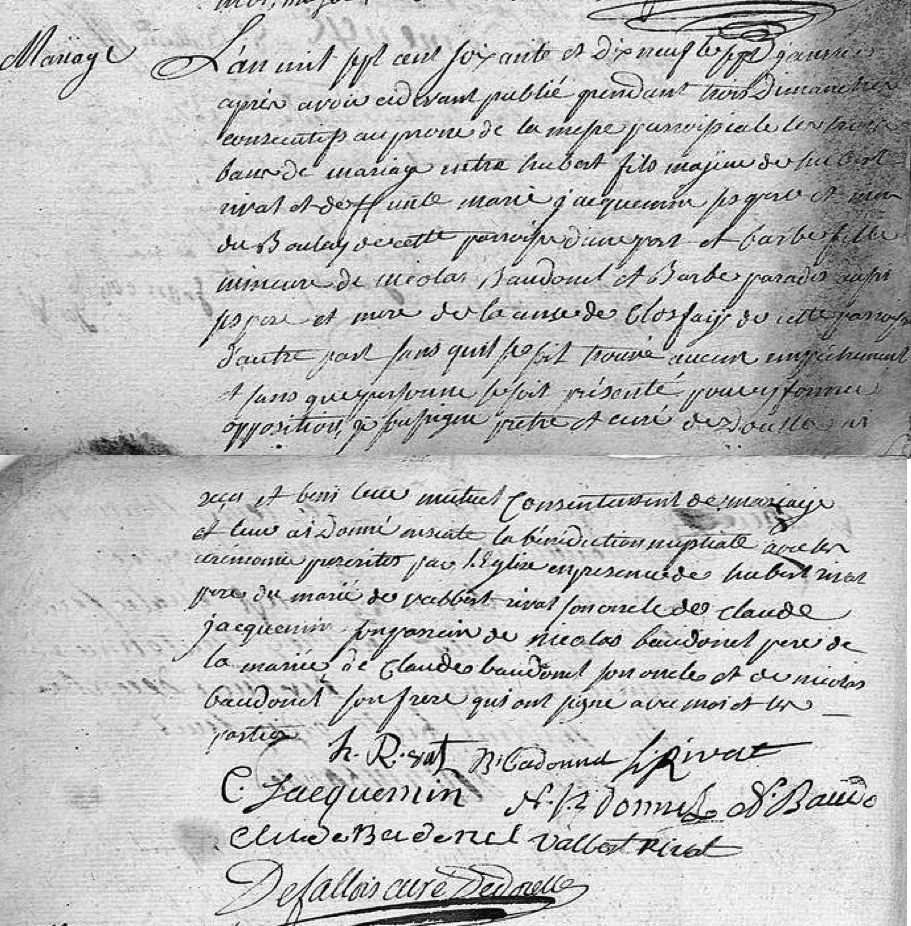 Mariage
L'an mil sept cent soixante et dix neuf le sept janvier
après avoir cidevant publié pendant trois Dimanches
consecutifs au prone de la messe parroissiale les trois
bans de mariage entre hubert fils majeur de hubert
rivat et deffunte marie jacquemin ses pere et mere
du Boulay de cette parroisse d'une part et barbe fille
mineure de nicolas Baudonel et Barbe paradis aussi
ses pere et mere de la cense de Closfaÿs de cette parroisse
d'autre part sans quil se soit trouvé aucun empêchement
et sans que personne se soit présenté pour y former
opposition, je soussigne pretre et curé de
reçu et beni leur mutuel Consentement de mariage
et leur ai Donné ensuite la bénédiction nuptiale avec les
ceremonies prescrites par l'Eglise en presence de hubert rivat
pere du marié de valbert rivat son oncle de claude
jacquemin son parein de nicolas baudonel pere de
la mariée de Claude baudonel son oncle et de nicolas
baudonel son frere qui ont signe avec moi et les
parties
h. Rivat B. Badonnel h Rivat
C. Jacquemin N. Bdonnel N. Baudo
Claude Badonel Valbert Rivat
Defallois curé Dedoelle